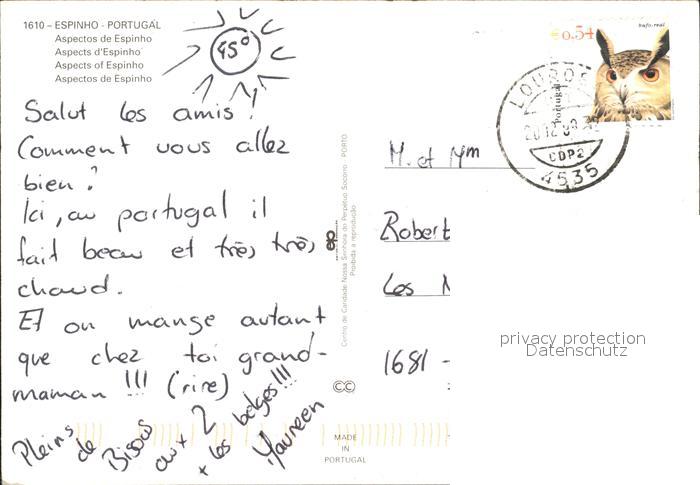 1610 – ESPINHO - PORTUGAL
Aspectos de Espinho
Aspects d'Espinho
Aspects of Espinho
Aspectos de Espinho
45°
Salut les amis !
Comment vous allez
bien ?
Ici, au portugal il
fait beau et très très
chaud.
Et on mange autant
que chez toi grand-
maman !!! (rire)
Pleins
de
Bisous
aux 2
+ les belges!!!
Maureen
Centro de Caridade Nossa Senhora do Perpétuo Socorro - PORTO
Proibida a reprodução
MADE
IN
PORTUGAL
€0.54
bufo.real
Portugal
CDP2
4535
M. et Mm
Robert
Les
1681 -
privacy protection
Datenschutz